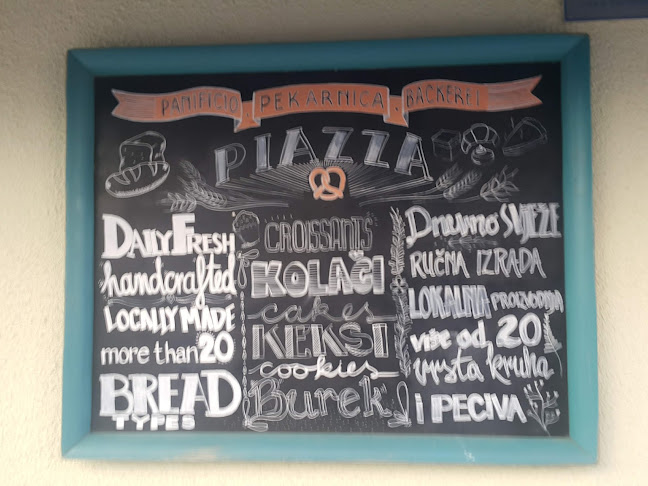 PANIFICIO · PEKARNICA · BÄCKEREI
PIAZZA
DAILY FRESH
handcrafted
LOCALLY MADE
more than 20
BREAD
TYPES
CROISSANTS
KOLAČI
cakes
KEKSI
cookies
Burek
Dnevno SVJEŽE
RUČNA IZRADA
LOKALNA PROIZVODNJA
više od 20
vrsta kruha
i PECIVA